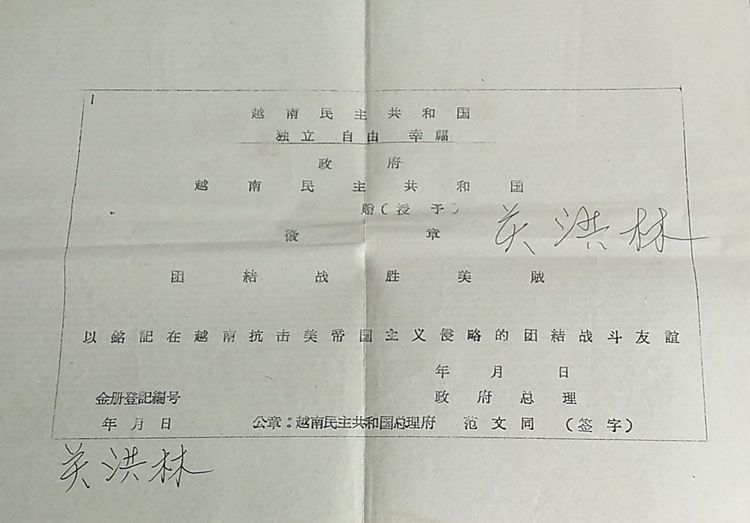 越南民主共和国
独立 自由 幸福
政府
越南民主共和国
贈(授予)
徽章 关洪林
团結战胜美賊
以銘記在越南抗击美帝国主义侵略的团結战斗友誼
年月日
金册登記編号 政府总理
年月日 公章：越南民主共和国总理府 范文同（签字）
关洪林